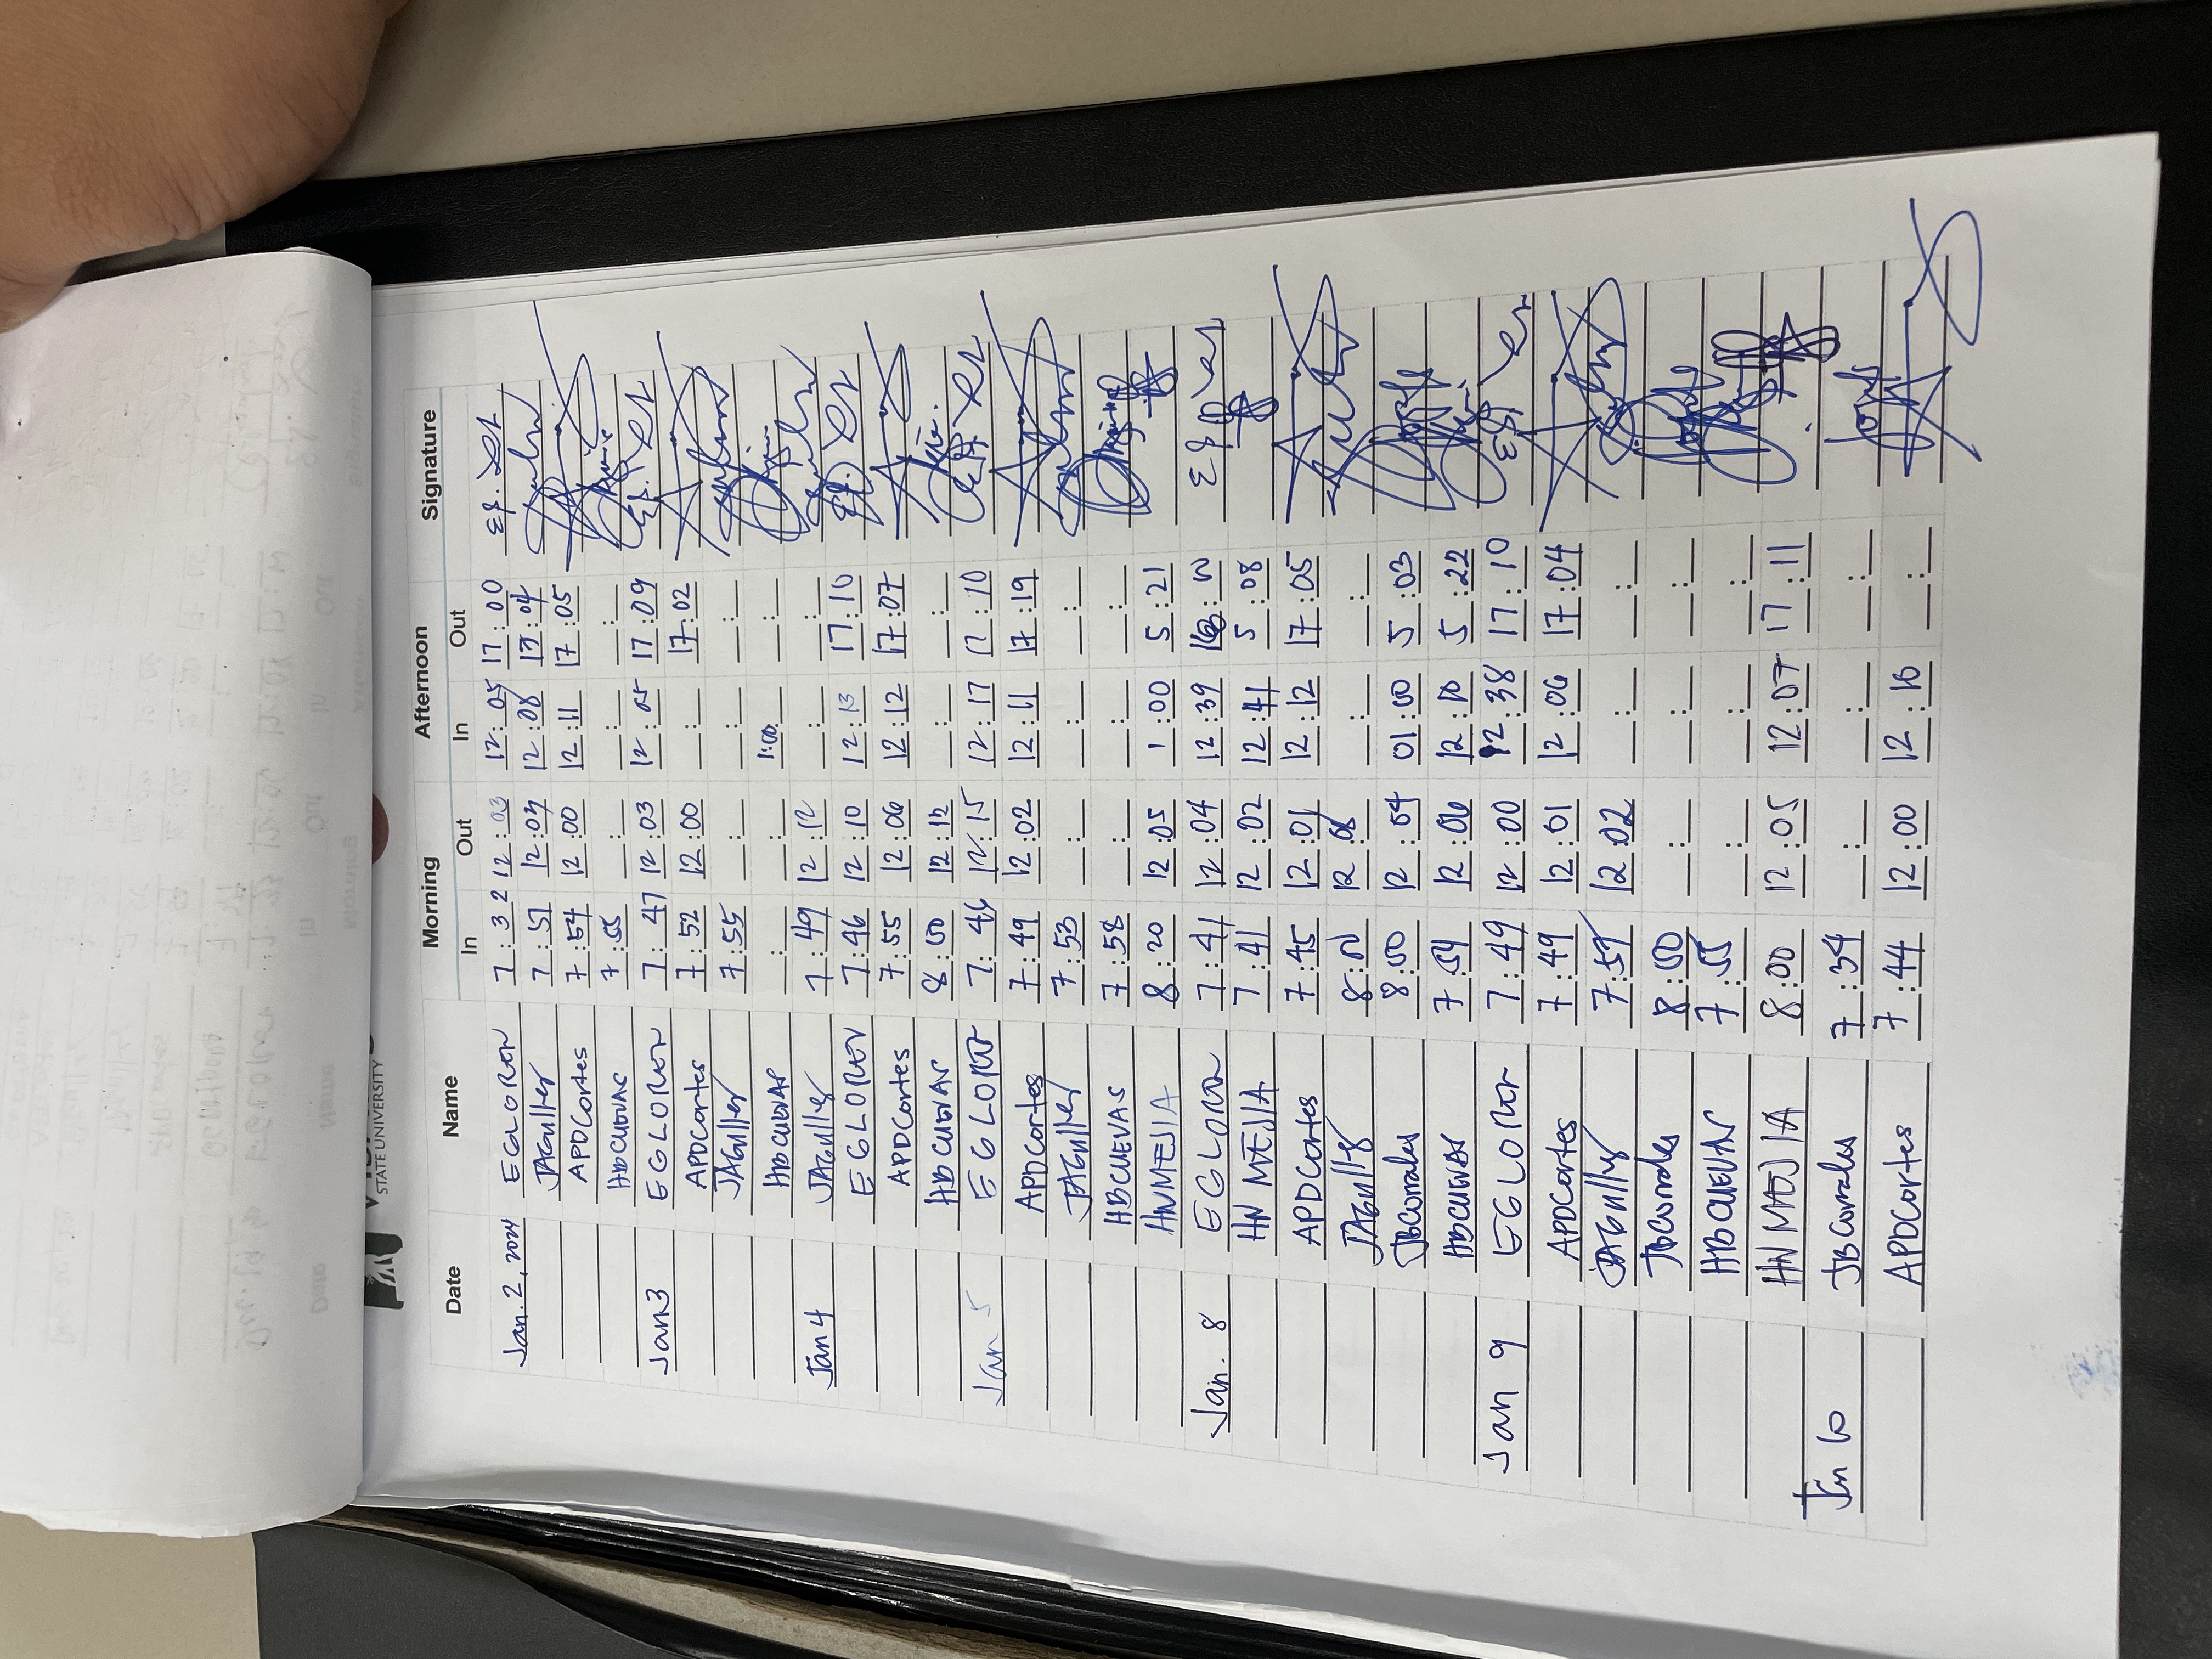 STATE UNIVERSITY
Date Name Morning Afternoon Signature
In Out In Out
Jan. 2, 2024 EGLORON 7:32 12:03 12:05 17:00
JAGuller 7:51 12:07 12:08 17:04
APDCortes 7:54 12:00 12:11 17:05
HBCUEVAS 7:55 __:__ __:__ __:__
Jan 3 EGLOREN 7:47 12:03 12:05 17:09
APDCortes 7:52 12:00 __:__ 17:02
JAGuller 7:55 __:__ __:__ __:__
HBCUEVAS __:__ 1:00 __:__
Jan 4 JAGuller 7:49 12:12 __:__ __:__
EGLOREN 7:46 12:10 12:13 17:10
APDCortes 7:55 12:06 12:12 17:07
HBCUEVAS 8:00 12:12 __:__ __:__
Jan 5 EGLOREN 7:46 12:15 12:17 17:10
APDCortes 7:49 12:02 12:11 17:19
JAGuller 7:53 __:__ __:__ __:__
HBCUEVAS 7:58 __:__ __:__ __:__
HNMEJIA 8:20 12:05 1:00 5:21
Jan. 8 EGLOREN 7:41 12:04 12:39
HN MEJIA 7:41 12:02 12:41 5:08
APDCortes 7:45 12:01 12:12 17:05
JAGuller 8:01 12:08 __:__ __:__
JBCorrales 8:00 12:04 01:00 5:03
HBCUEVAS 7:54 12:06 12:10 5:22
Jan 9 EGLOREN 7:49 12:00 12:38 17:10
APDCortes 7:49 12:01 12:06 17:04
JAGuller 7:59 12:02 __:__ __:__
JBCorrales 8:00 __:__ __:__ __:__
HBCUEVAS 7:55 __:__ __:__ __:__
HN MEJIA 8:00 12:05 12:07 17:11
Jan 10 JBCorrales 7:34 __:__ __:__ __:__
APDCortes 7:44 12:00 12:16 __:__